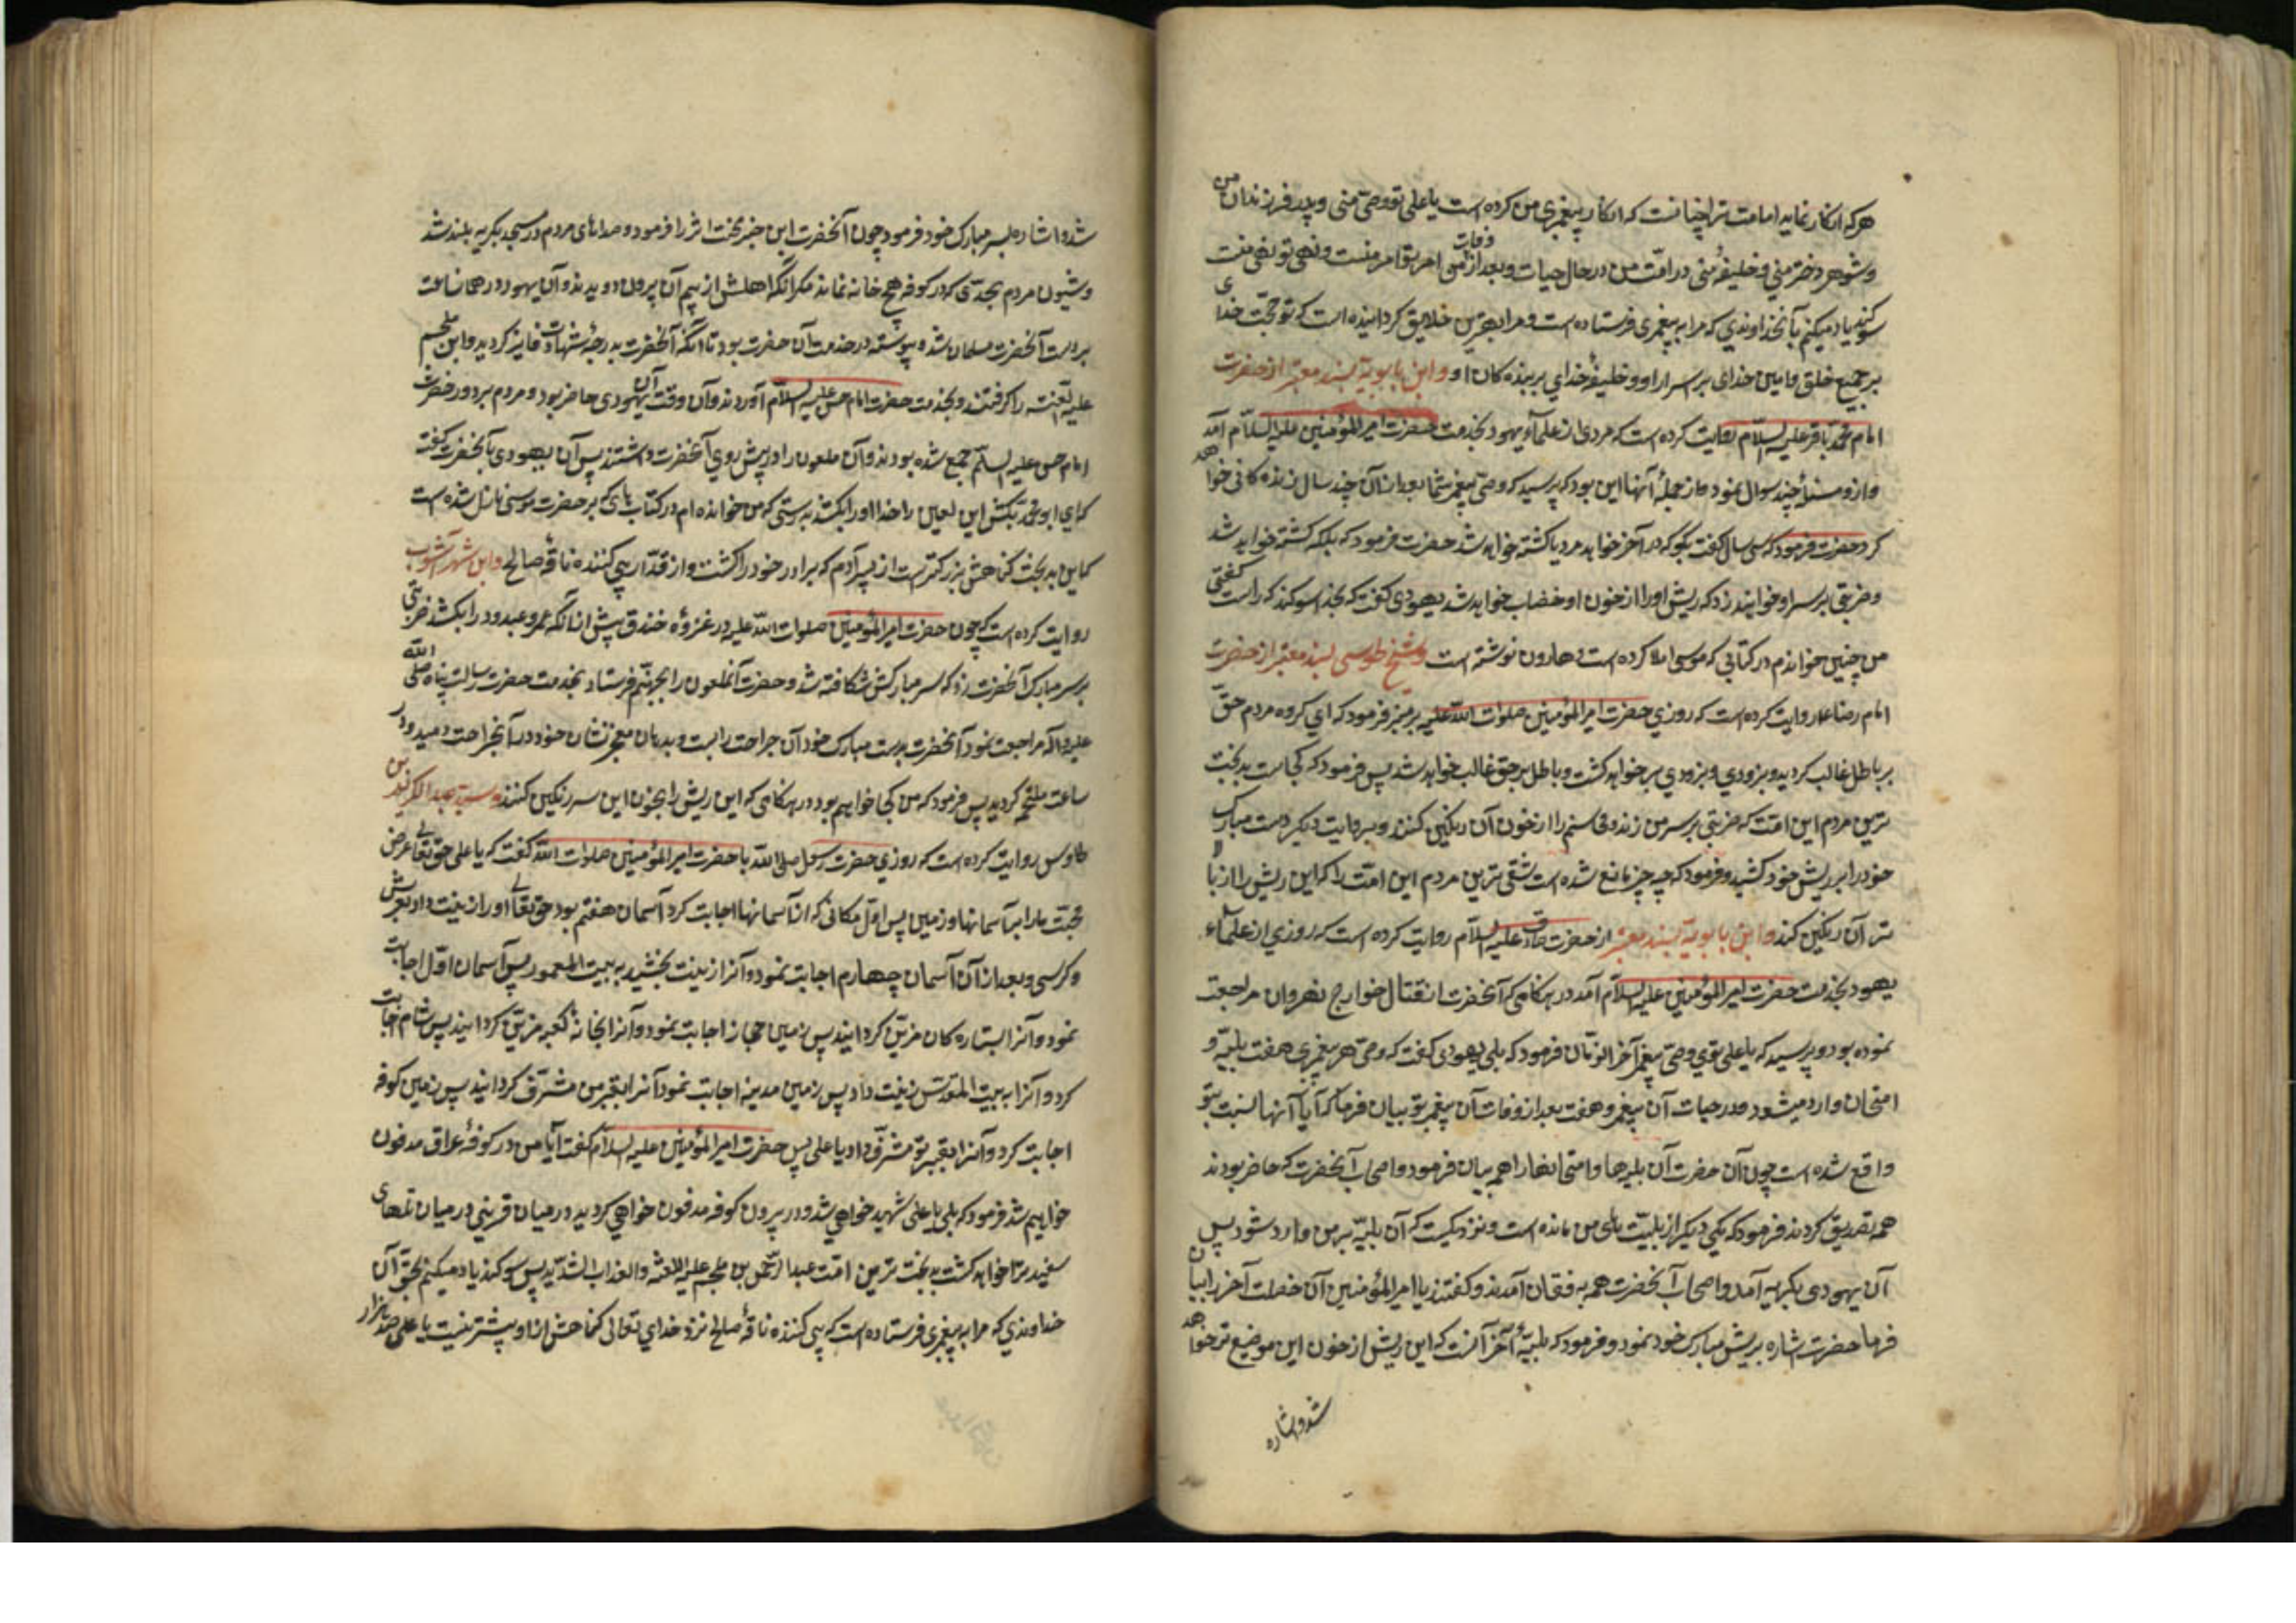 هرکه انکار نماید امامت ترا چنانست که انکار پیغمبری من کرده است یا علی تو وصی منی و پدر فرزندان من
و شوهر دختر منی و خلیفهٔ منی در امت من در حال حیات و بعد از وفات من امر تو امر منست و نهی تو نهی منست
سوکند یاد میکنم بآنخداوندی که مرا به پیغمبری فرستاده است و مرا بهترین خلایق کردانیده است که تو حجت خدای
بر جمیع خلق و امین خدای بر اسرار او و خلیفهٔ خدای بر بنده کان او و ابن بابویه بسند معتبر از حضرت
امام محمد باقر علیه السلام روایت کرده است که مردی از علماء یهود بخدمت حضرت امیرالمؤمنین علیه السلام آمد
و از و مسئلهٔ چند سوال نمود و از جملهٔ آنها این بود که پرسید که وصی پیغمبر شما بعد از آن چند سال زنده کانی خواهد
کرد حضرت فرمود که سی سال کفت بکو که در آخر خواهد مرد یا کشته خواهد شد حضرت فرمود که بلکه کشته خواهد شد
و ضربتی بر سر او خواهند زد که ریش او را از خون او خضاب خواهد شد یهودی کفت که بخدا سوکند که راست کفتی
من چنین خواندم در کتابی که موسی املا کرده است و هارون نوشته است و شیخ طوسی بسند معتبر از حضرت
امام رضا ع روایت کرده است که روزی حضرت امیرالمؤمنین صلوات الله علیه بر منبر فرمود که ای کروه مردم حق
بر باطل غالب کردید و بزودی و بزودی بر خواهد کشت و باطل بر حق غالب خواهد شد پس فرمود که کجاست بدبخت
ترین مردم این امت که ضربتی بر سر من زند و محاسنم را از خون آن رنکین کند و بروایت دیکر دست مبارک
خود را بر ریش خود کشید و فرمود که چه چیز مانع شده است شقی ترین مردم این امت را که این ریش را از بالا
تر آن رنکین کند و ابن بابویه بسند معتبر از حضرت صادق علیه السلام روایت کرده است که روزی از علماء
یهود بخدمت حضرت امیرالمؤمنین علیه السلام آمد در هنکامی که آنحضرت از قتال خوارج نهروان مراجعت
نموده بود و پرسید که یا علی توی وصی پیغمبر آخر الزمان فرمود که بلی یهودی کفت که وصی هر پیغمبری هفت بلیه و
امتحان وارد میشود در حیات آن پیغمبر و هفت بعد از وفات آن پیغمبر تو بیان فرما که آیا آنها نسبت بتو
واقع شده است چون آن حضرت آن بلیه ها و امتحانها را همه بیان فرمود و اصحاب آنحضرت که حاضر بودند
همه تصدیق کردند فرمود که یکی دیکر از بلیت های من مانده است و نزدیکست که آن بلیه بر من وارد شود پس
آن یهودی بکریه آمد و اصحاب آنحضرت همه به فغان آمدند و کفتند یا امیرالمؤمنین آن خصلت آخر را بیان
فرما حضرت اشاره بریش مبارک خود نمود و فرمود که بلیهٔ آخر آنست که این ریش از خون این موضع تر خواهد
شد و اشاره
شد و اشاره بسر مبارک خود فرمود چون آنحضرت این خبر محنت اثر را فرمود و صداهای مردم در مسجد بکریه بلند شد
و شیون مردم بحدی که در کوفه هیچ خانه نماند مکر آنکه اهلش از بیم آن بیرون دویدند و آن یهود در همان ساعت
بر دست آنحضرت مسلمان شد و پیوسته در خدمت آن حضرت بود تا آنکه آنحضرت بدرجهٔ شهادت فایز کردید و ابن ملجم
علیه اللعنه را کرفتند و بخدمت حضرت امام حسن علیه السلام آوردند و آن وقت آن یهودی حاضر بود و مردم بر دور حضرت
امام حسن علیه السلام جمع شده بودند و آن ملعون را در پیش روی آنحضرت داشتند پس آن یهودی بآنحضرت کفت
که ای ابو محمد بکش این لعین را خدا او را بکشد بدرستی که من خوانده ام در کتاب های که بر حضرت موسی نازل شده است
که این بدبخت کناهش بزرکتر است از پسر آدم که برادر خود را کشت و از قدار پی کننده ناقهٔ صالح و ابن شهر آشوب
روایت کرده است که چون حضرت امیرالمؤمنین صلوات الله علیه در غزوهٔ خندق پیش از آنکه عمرو عبدود را بکشد ضربتی
بر سر مبارک آنحضرت زد که سر مبارکش شکافته شد و حضرت آنملعون را بجهنم فرستاد بخدمت حضرت رسالت پناه صلی الله
علیه و اله مراجعت نمود آنحضرت بدست مبارک خود آن جراحت را بست و بدهان معجز نشان خود در آنجراحت دمید و در
ساعت ملتئم کردید پس فرمود که من کجا خواهم بود در هنکامی که این ریش را بخون این سر رنکین کنند و سید عبدالکریم بن
طاوس روایت کرده است که روزی حضرت رسول صلی الله با حضرت امیرالمؤمنین صلوات الله کفت که یا علی حق تعالی عرض
محبت ما را بر آسمانها و زمین پس اول مکانی که از آسمانها اجابت کرد آسمان هفتم بود حق تعالی او را زینت داد بعرش
و کرسی و بعد از آن آسمان چهارم اجابت نمود و آنرا زینت بخشید به بیت المعمور پس آسمان اول اجابت
نمود و آنرا بستاره کان مزین کردانید پس زمین حجاز اجابت نمود و آنرا بخانهٔ کعبه مزین کردانید پس شام اجابت
کرد و آنرا به بیت المقدس زینت داد پس زمین مدینه اجابت نمود آنرا بقبر من مشرف کردانید پس زمین کوفه
اجابت کرد و آنرا بقبر تو مشرف داد یا علی پس حضرت امیرالمؤمنین علیه السلام کفت آیا من در کوفهٔ عراق مدفون
خواهم شد فرمود که بلی یا علی شهید خواهی شد و در بیرون کوفه مدفون خواهی کردید در میان قریتی در میان تلهای
سفید ترا خواهد کشت بدبخت ترین امت عبدالرحمن بن ملجم علیه اللعنه والعذاب الشدید پس سوکند یاد میکنم بحق آن
خداوندی که مرا به پیغمبری فرستاده است که پی کننده ناقهٔ صالح نزد خدای تعالی کناهش از او بیشتر نیست یا علی صد هزار